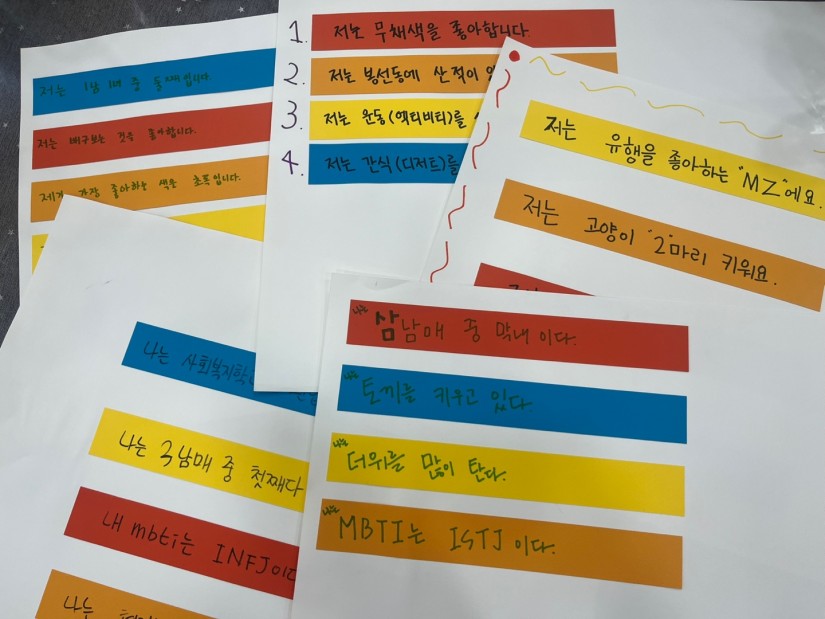 저는 1남 1녀 중 둘째입니다.
저는 배구보는 것을 좋아합니다.
제가 가장 좋아하는 색은 초록입니다.
1. 저는 무채색을 좋아합니다.
2. 저는 봉선동에 산 적이
3. 저는 운동(액티비티)를
4. 저는 간식(디저트)를
저는 유행을 좋아하는 "MZ"에요.
저는 고양이 "2"마리 키워요.
나는 사회복지학
나는 3남매 중 첫째다
내 mbti는 INFJ이다
나는
나는 삼남매 중 막내이다.
나는 토끼를 키우고 있다.
나는 더위를 많이 탄다.
나는 MBTI는 ISTJ이다.